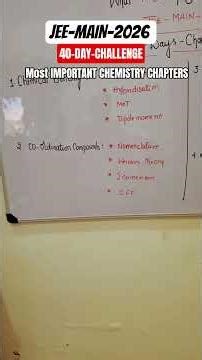 JEE-MAIN-2026
40-DAY-CHALLENGE
Most IMPORTANT CHEMISTRY CHAPTERS
JEE-MAIN-
Days-Cha
1. Chemical Bonding
• Hybridisation
• MOT
• Dipole moment
2. CO-Ordination Compounds:
• Nomenclature
• Isomerism
• CFT